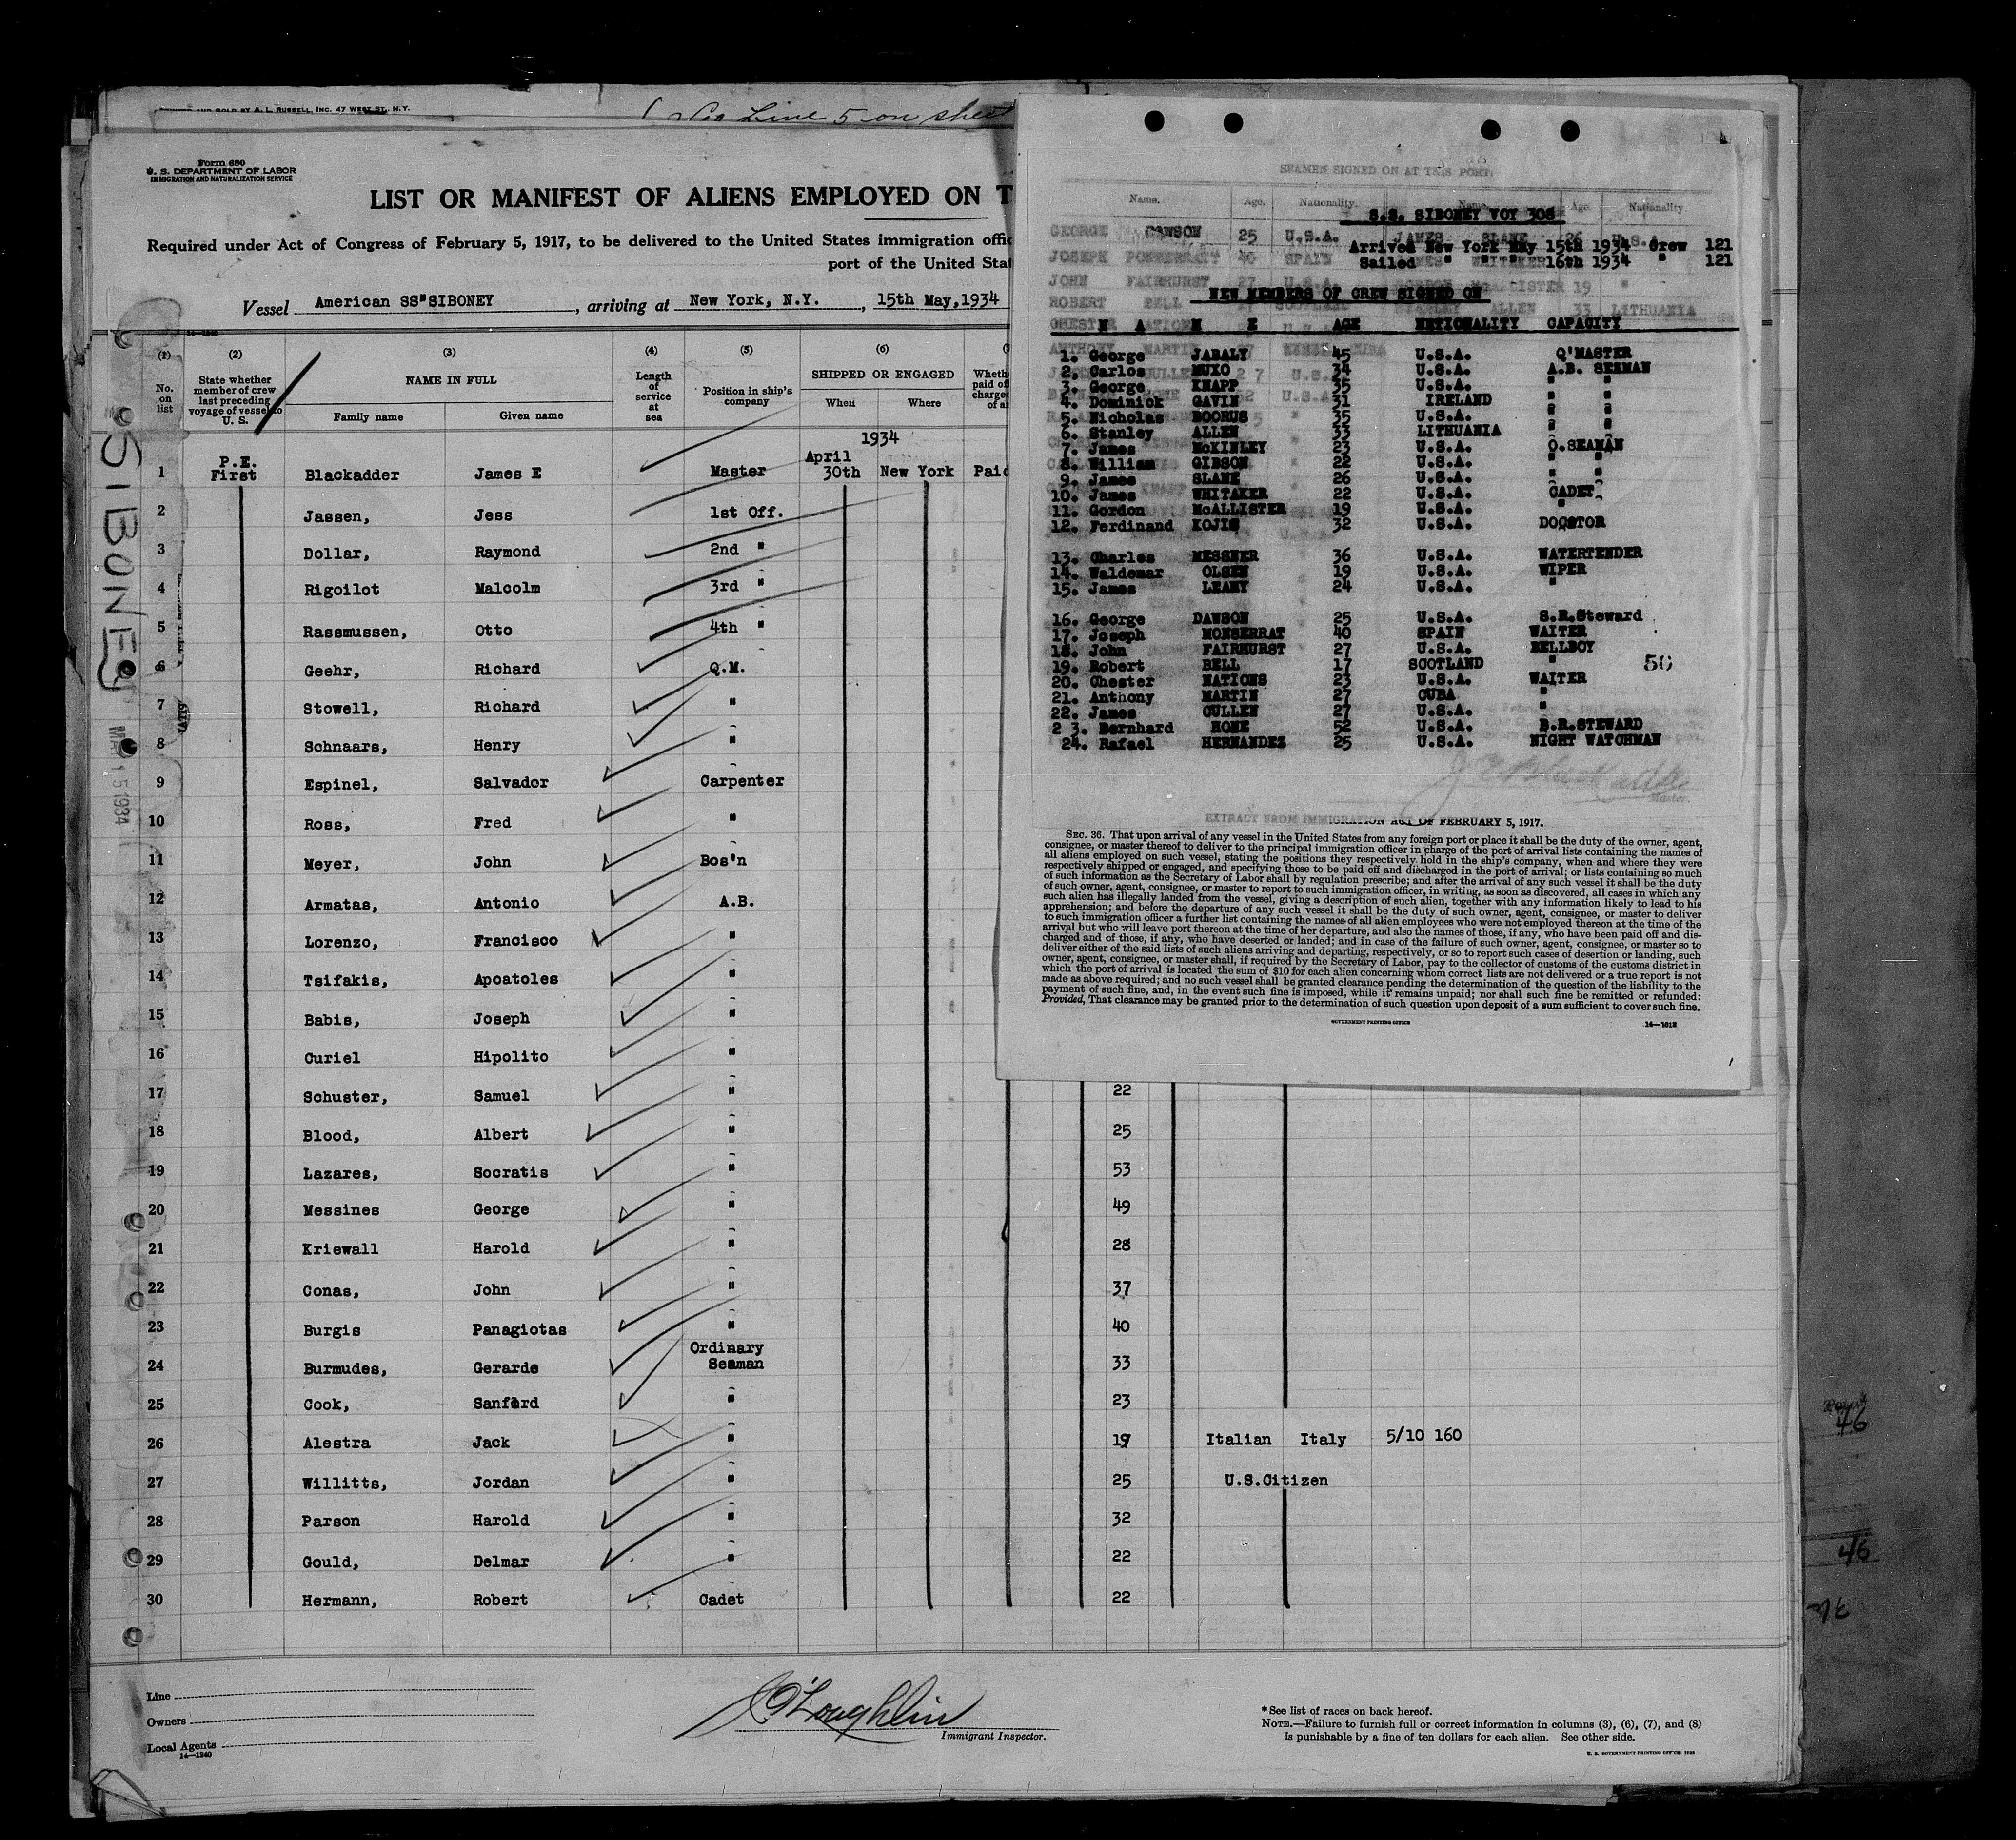 PRINTED AND SOLD BY A. L. RUSSELL, INC. 47 WEST ST., N.Y.
Line 5 on sheet
Form 680
U. S. DEPARTMENT OF LABOR
IMMIGRATION AND NATURALIZATION SERVICE
LIST OR MANIFEST OF ALIENS EMPLOYED ON T
Required under Act of Congress of February 5, 1917, to be delivered to the United States immigration offic
port of the United Sta
Vessel American SS"SIBONEY, arriving at New York, N.Y., 15th May,1934
(1) (2) (3) (4) (5) (6)
No. on list
State whether member of crew last preceding voyage of vessel to U. S.
NAME IN FULL
Family name Given name
Length of service at sea
Position in ship's company
SHIPPED OR ENGAGED
When Where
Wheth
paid of
charge
of a
1934
1 P.E. First Blackadder James E Master April 30th New York Paid
2 Jassen, Jess 1st Off.
3 Dollar, Raymond 2nd "
4 Rigoilot Malcolm 3rd "
5 Rassmussen, Otto 4th "
6 Geehr, Richard Q.M.
7 Stowell, Richard "
8 Schnaars, Henry "
9 Espinel, Salvador Carpenter
10 Ross, Fred "
11 Meyer, John Bos'n
12 Armatas, Antonio A.B.
13 Lorenzo, Francisco "
14 Tsifakis, Apostoles "
15 Babis, Joseph "
16 Curiel Hipolito "
17 Schuster, Samuel " 22
18 Blood, Albert " 25
19 Lazares, Socratis " 53
20 Messines George " 49
21 Kriewall Harold " 28
22 Conas, John " 37
23 Burgis Panagiotas " 40
24 Burmudes, Gerarde Ordinary Seaman 33
25 Cook, Sanford " 23
26 Alestra Jack " 19 Italian Italy 5/10 160
27 Willitts, Jordan " 25 U.S.Citizen
28 Parson Harold " 32
29 Gould, Delmar " 22
30 Hermann, Robert Cadet 22
SIBONEY
MAY 15 1934
Line
Owners
Local Agents
14—1240
O'Loughlin
Immigrant Inspector.
*See list of races on back hereof.
NOTE.—Failure to furnish full or correct information in columns (3), (6), (7), and (8)
is punishable by a fine of ten dollars for each alien. See other side.
U. S. GOVERNMENT PRINTING OFFICE
SEAMEN SIGNED ON AT THIS PORT.
Name. Age. Nationality. Name. Age. Nationality
S.S. SIBONEY VOY 308
Arrived New York May 15th 1934 Crew 121
Sailed " " " 16th 1934 " 121
NEW MEMBERS OF CREW SIGNED ON
N A M E AGE NETIONALITY CAPACITY
1. George JABALY 45 U.S.A. Q'MASTER
2, Carlos MUXO 34 U.S.A. A.B. SEAMAN
3. George KNAPP 35 U.S.A. " "
4. Dominick GAVIN 31 IRELAND " "
5. Nicholas BOORUS 35 U.S.A. " "
6. Stanley ALLEN 33 LITHUANIA " "
7. James McKINLEY 23 U.S.A. O.SEAMAN
8. William GIBSON 22 U.S.A. " "
9. James SLANE 26 U.S.A. " "
10. James WHITAKER 22 U.S.A. CADET
11. Gordon McALLISTER 19 U.S.A. "
12. Ferdinand KOJIS 32 U.S.A. DOCSTOR
13. Charles MESSNER 36 U.S.A. WATERTENDER
14. Waldemar OLSEN 19 U.S.A. WIPER
15. James LEAHY 24 U.S.A. "
16. George DAWSON 25 U.S.A. S.R.Steward
17. Joseph MONSERRAT 40 SPAIN WAITER
18. John FAIRHURST 27 U.S.A. BELLBOY
19. Robert BELL 17 SCOTLAND "
20. Chester NATIONS 23 U.S.A. WAITER
21. Anthony MARTIN 27 CUBA "
22. James CULLEN 27 U.S.A. "
2 3. Bernhard HONE 52 U.S.A. B.R.STEWARD
24. Rafael HERNANDEZ 25 U.S.A. NIGHT WATCHMAN
50
J E Blackadder
Master.
EXTRACT FROM IMMIGRATION ACT OF FEBRUARY 5, 1917.
SEC. 36. That upon arrival of any vessel in the United States from any foreign port or place it shall be the duty of the owner, agent,
consignee, or master thereof to deliver to the principal immigration officer in charge of the port of arrival lists containing the names of
all aliens employed on such vessel, stating the positions they respectively hold in the ship's company, when and where they were
respectively shipped or engaged, and specifying those to be paid off and discharged in the port of arrival; or lists containing so much
of such information as the Secretary of Labor shall by regulation prescribe; and after the arrival of any such vessel it shall be the duty
of such owner, agent, consignee, or master to report to such immigration officer, in writing, as soon as discovered, all cases in which any
such alien has illegally landed from the vessel, giving a description of such alien, together with any information likely to lead to his
apprehension; and before the departure of any such vessel it shall be the duty of such owner, agent, consignee, or master to deliver
to such immigration officer a further list containing the names of all alien employees who were not employed thereon at the time of the
arrival but who will leave port thereon at the time of her departure, and also the names of those, if any, who have been paid off and dis-
charged and of those, if any, who have deserted or landed; and in case of the failure of such owner, agent, consignee, or master so to
deliver either of the said lists of such aliens arriving and departing, respectively, or so to report such cases of desertion or landing, such
owner, agent, consignee, or master shall, if required by the Secretary of Labor, pay to the collector of customs of the customs district in
which the port of arrival is located the sum of $10 for each alien concerning whom correct lists are not delivered or a true report is not
made as above required; and no such vessel shall be granted clearance pending the determination of the question of the liability to the
payment of such fine, and, in the event such fine is imposed, while it remains unpaid; nor shall such fine be remitted or refunded:
Provided, That clearance may be granted prior to the determination of such question upon deposit of a sum sufficient to cover such fine.
GOVERNMENT PRINTING OFFICE
46
46